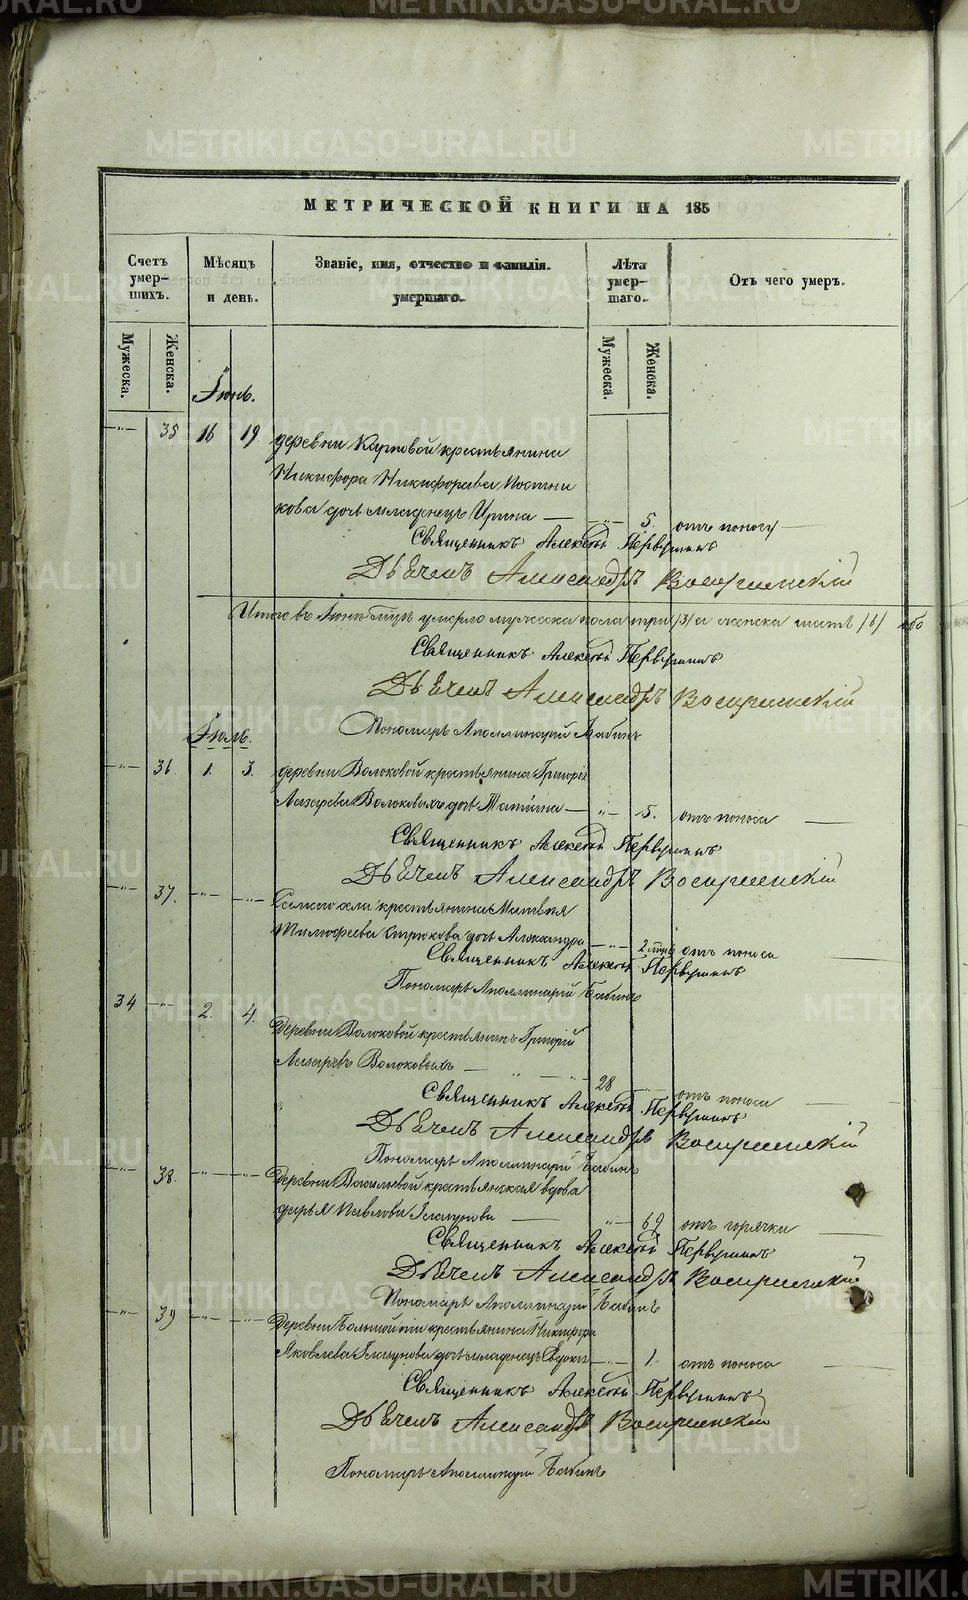 METRIKI.GASO-URAL.RU
МЕТРИЧЕСКОЙ КНИГИ НА 185
Счетъ умер-шихъ.
Мѣсяцъ и день.
Званіе, имя, отчество и фамилія. умершаго.
Лѣта умер-шаго.
Отъ чего умеръ.
Мужеска.
Женска.
Мужеска.
Женска.
Іюнь.
35 16 19 деревни крестьянина
Никифора Никифорова Постни
кова дочь младенецъ Ирина 5. отъ поносу
Священникъ Алексѣй Первушинъ
Дьячекъ Александръ Воскресенскій
Итого въ Іюнѣ м-цѣ умерло мужеска пола три /3/ а женска шесть /6/ обо
Священникъ Алексѣй Первушинъ
Дьячекъ Александръ Воскресенскій
Пономарь Аполлинарій Бабинъ
Іюль.
36. 1. 3. деревни Волоковой крестьянина Григорія
Лазарева Волоковыхъ дочь Татіана 5. отъ поноса
Священникъ Алексѣй Первушинъ
Дьячекъ Александръ Воскресенскій
37. села крестьянина Матвея
дочь Александра 2 отъ поноса
Священникъ Алексѣй Первушинъ
Пономарь Аполлинарій Бабинъ
34 2. 4. Деревни Волоковой крестьянинъ Григорій
Лазаревъ Волоковыхъ 28 отъ поноса
Священникъ Алексѣй Первушинъ
Дьячекъ Александръ Воскресенскій
Пономарь Аполлинарій Бабинъ
38. Деревни крестьянская вдова
дарья Павлова Глазунова 69 отъ горячки
Священникъ Алексѣй Первушинъ
Дьячекъ Александръ Воскресенскій
Пономарь Аполлинарій Бабинъ
39 Деревни крестьянина Никифора
Яковлева Глазунова дочь младенецъ 1. отъ поноса
Священникъ Алексѣй Первушинъ
Дьячекъ Александръ Воскресенскій
Пономарь Аполлинарій Бабинъ